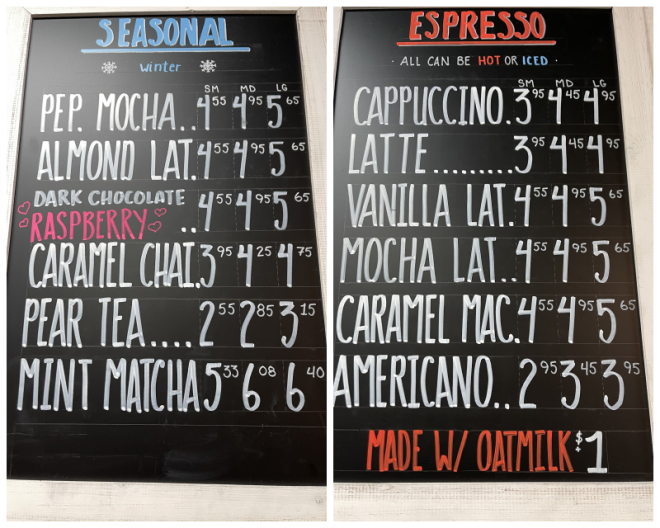 SEASONAL
winter
SM MD LG
PEP. MOCHA..4.55 4.95 5.65
ALMOND LAT.4.55 4.95 5.65
DARK CHOCOLATE
RASPBERRY ..4.55 4.95 5.65
CARAMEL CHAI.3.95 4.25 4.75
PEAR TEA....2.55 2.85 3.15
MINT MATCHA 5.33 6.08 6.40
ESPRESSO
· ALL CAN BE HOT OR ICED ·
SM MD LG
CAPPUCCINO.3.95 4.45 4.95
LATTE.........3.95 4.45 4.95
VANILLA LAT.4.55 4.95 5.65
MOCHA LAT..4.55 4.95 5.65
CARAMEL MAC.4.55 4.95 5.65
AMERICANO..2.95 3.45 3.95
MADE W/ OATMILK $+1